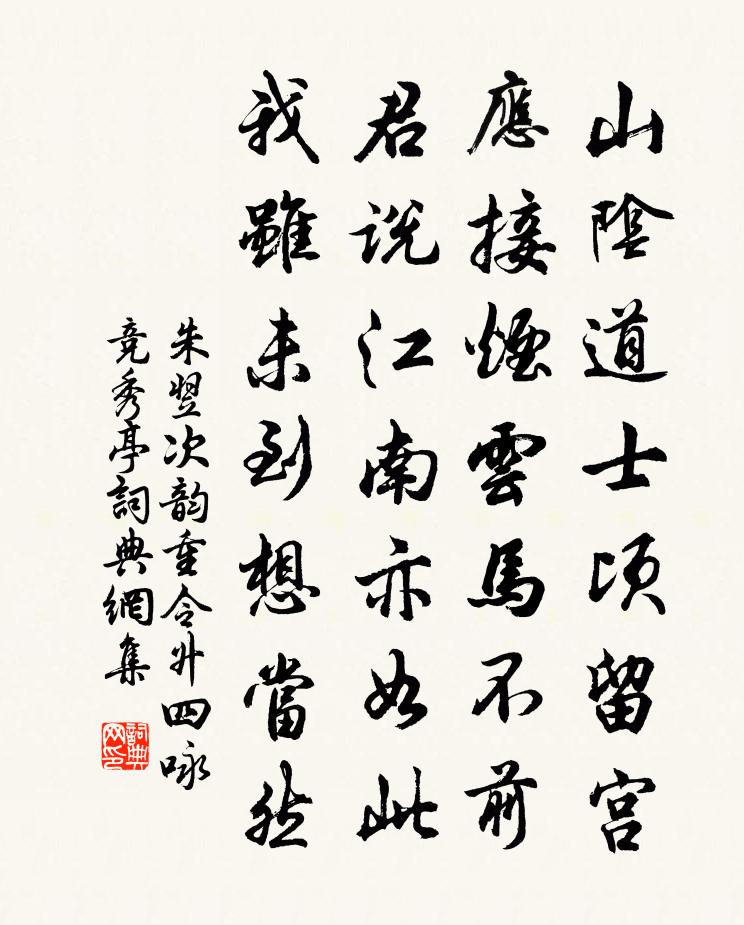 山陰道士頃留宮
應接煙雲馬不前
君説江南亦如此
我雖未到想當然
朱翌次韵重令升四咏
竞秀亭詞典網集
詞典网印